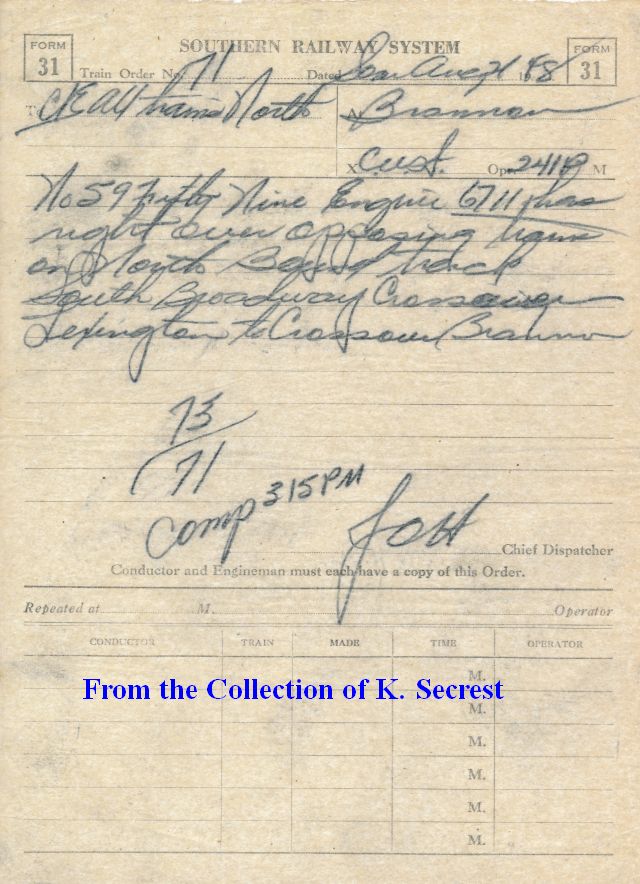 FORM 31
SOUTHERN RAILWAY SYSTEM
FORM 31
Train Order No. 71 Dated Aug 21 1948
To C&E All trains North
At Brannon
X C.U.S. Opr. 241 P M
No 59 Fifty Nine Engine 6711 has
right over opposing trains
on North Bound track
South Broadway Crossover
Lexington to Crossover Brannon
73
71
Comp 315 PM
Chief Dispatcher
Conductor and Engineman must each have a copy of this Order.
Repeated at M. Operator
CONDUCTOR TRAIN MADE TIME OPERATOR
M.
From the Collection of K. Secrest
M.
M.
M.
M.
M.